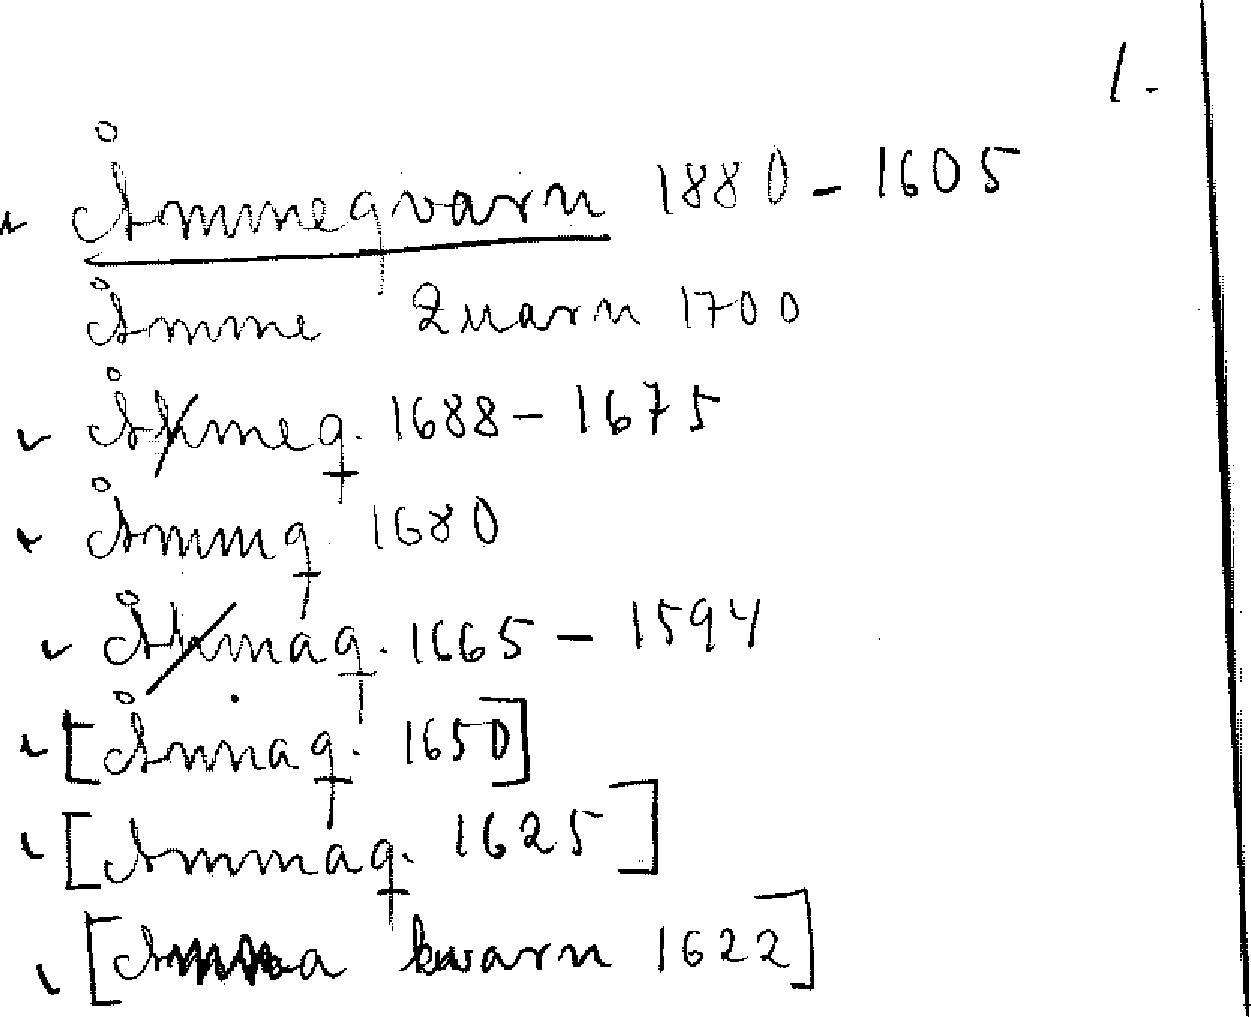 1.
Åmmeqvarn 1880 - 1605
Åmme Quarn 1700
Åmeq. 1688 - 1675
Åmmq. 1680
Åmåq. 1665 - 1594
[Åmaq. 1650]
[Ammåq. 1625]
kvarn 1622]